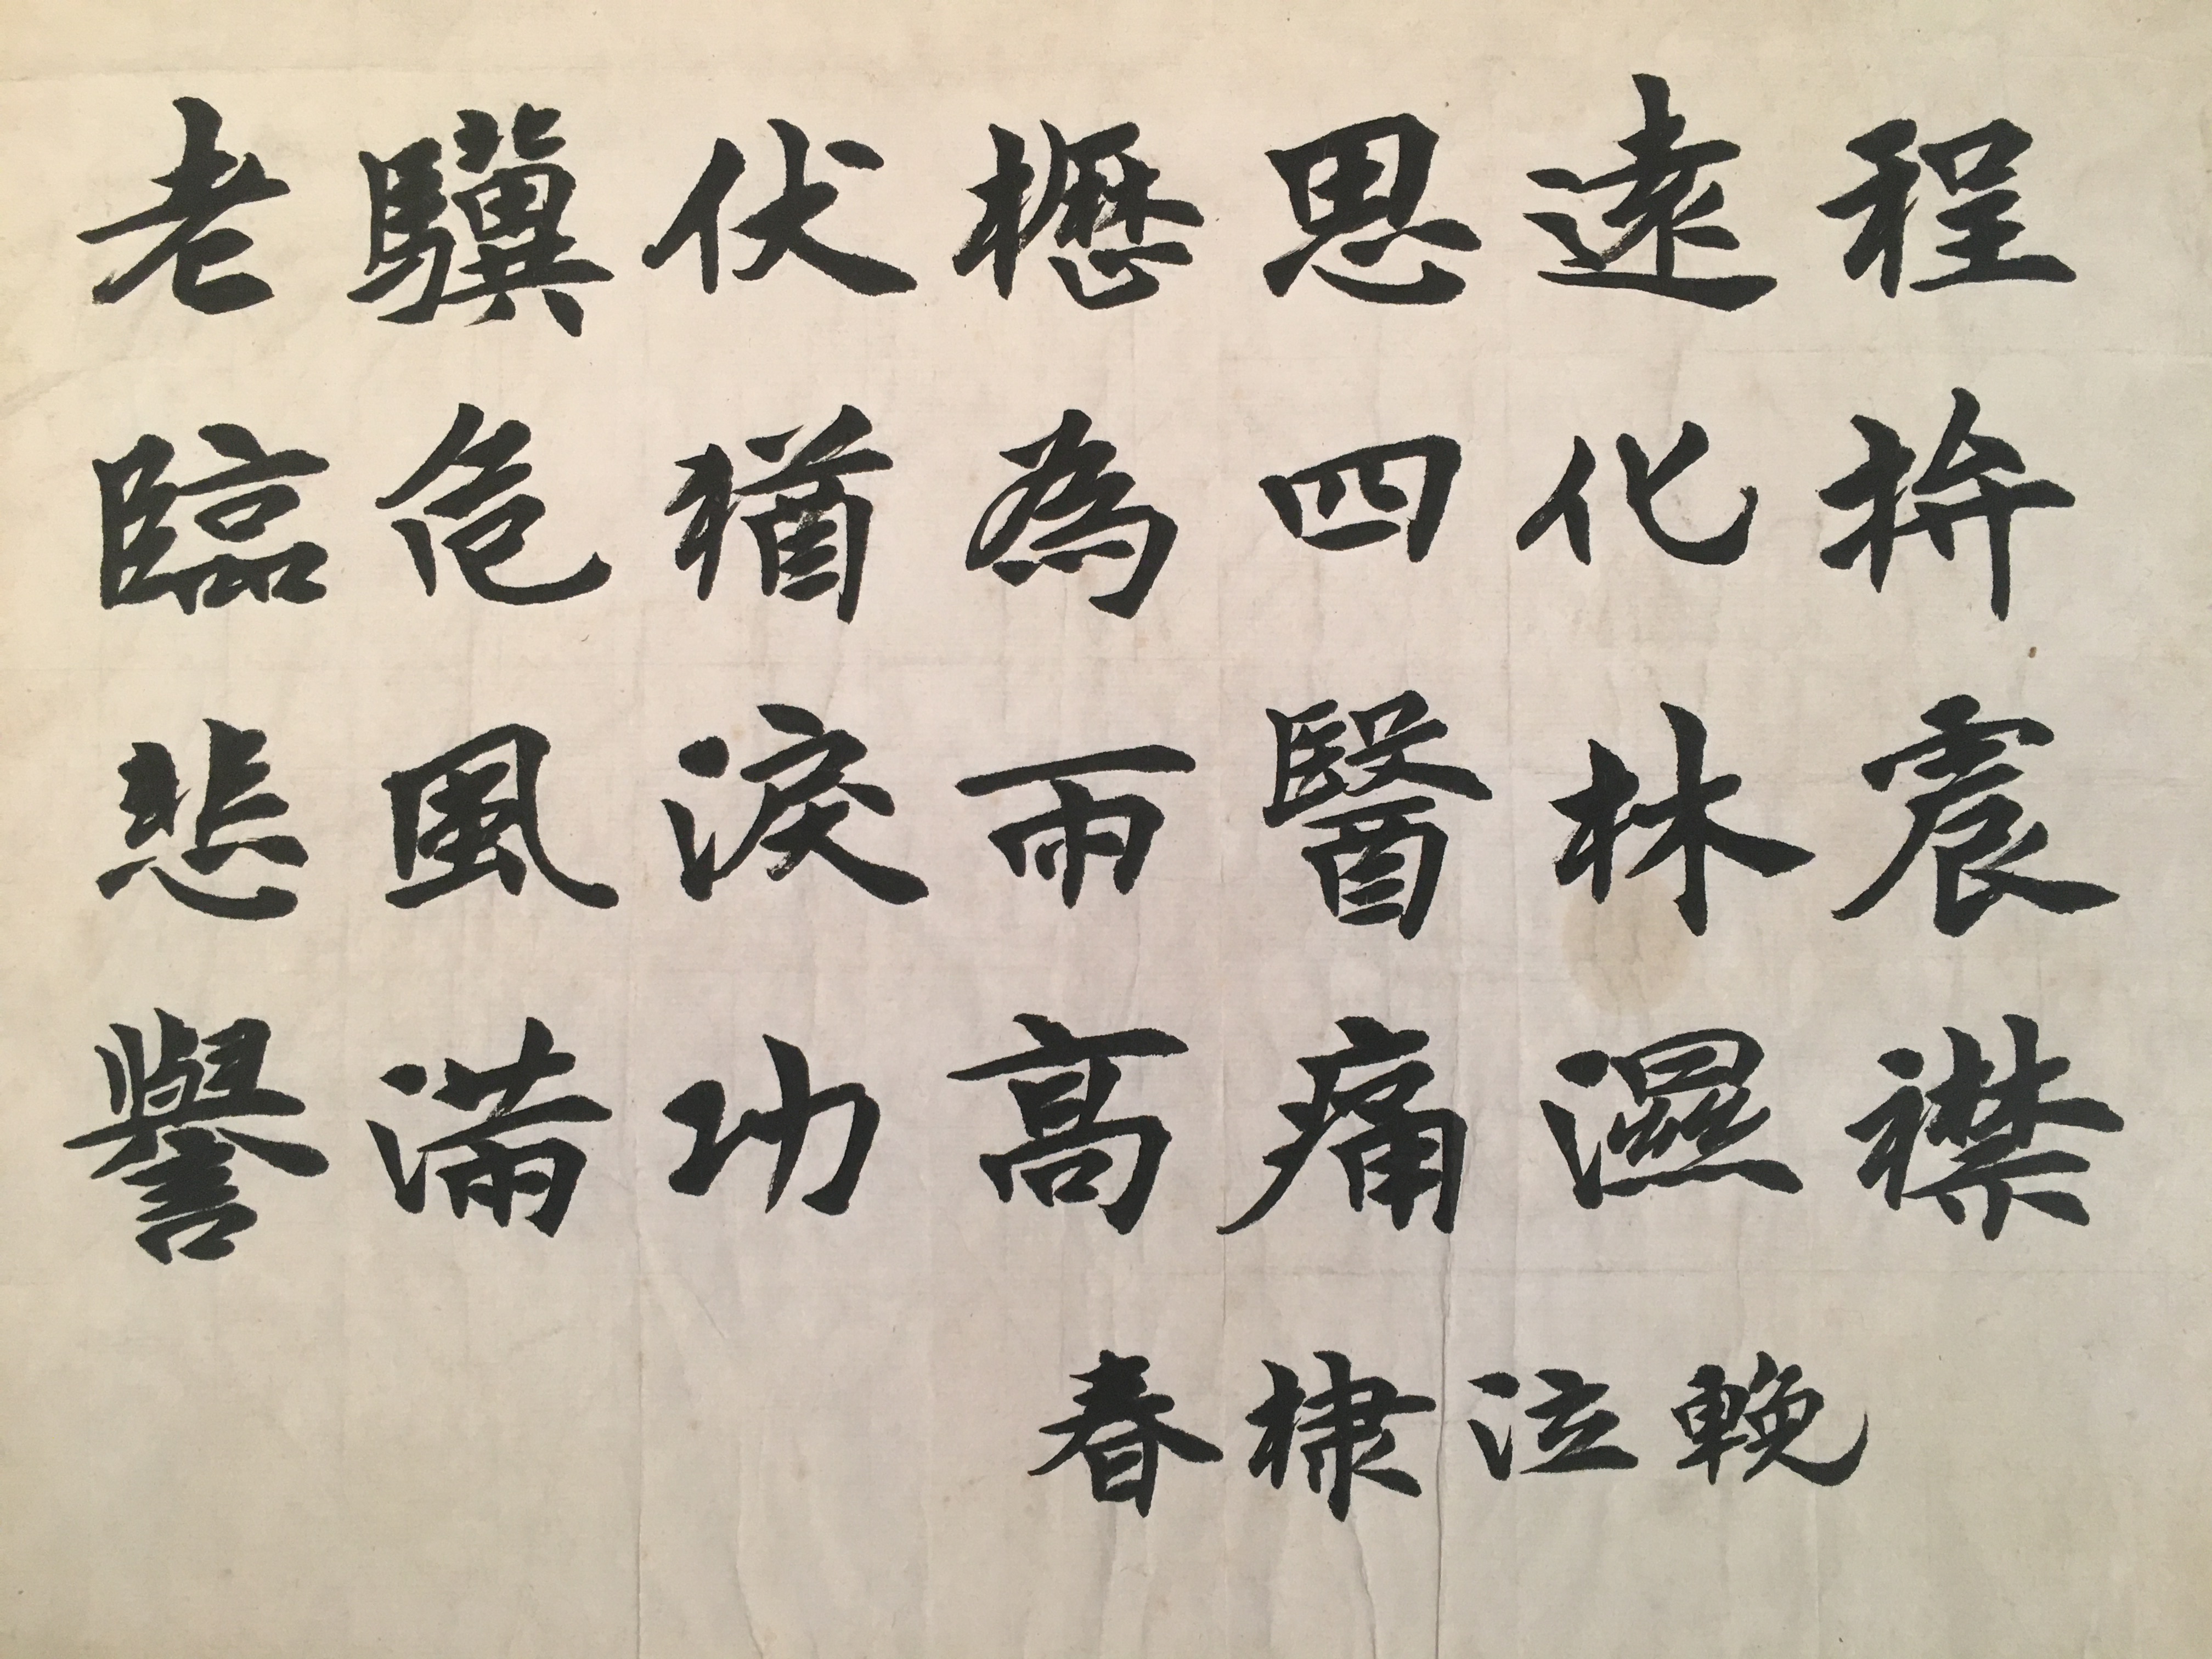 老驥伏櫪思遠程
臨危猶為四化拚
悲風淚雨醫林震
譽滿功高痛濕襟
春棣泣輓